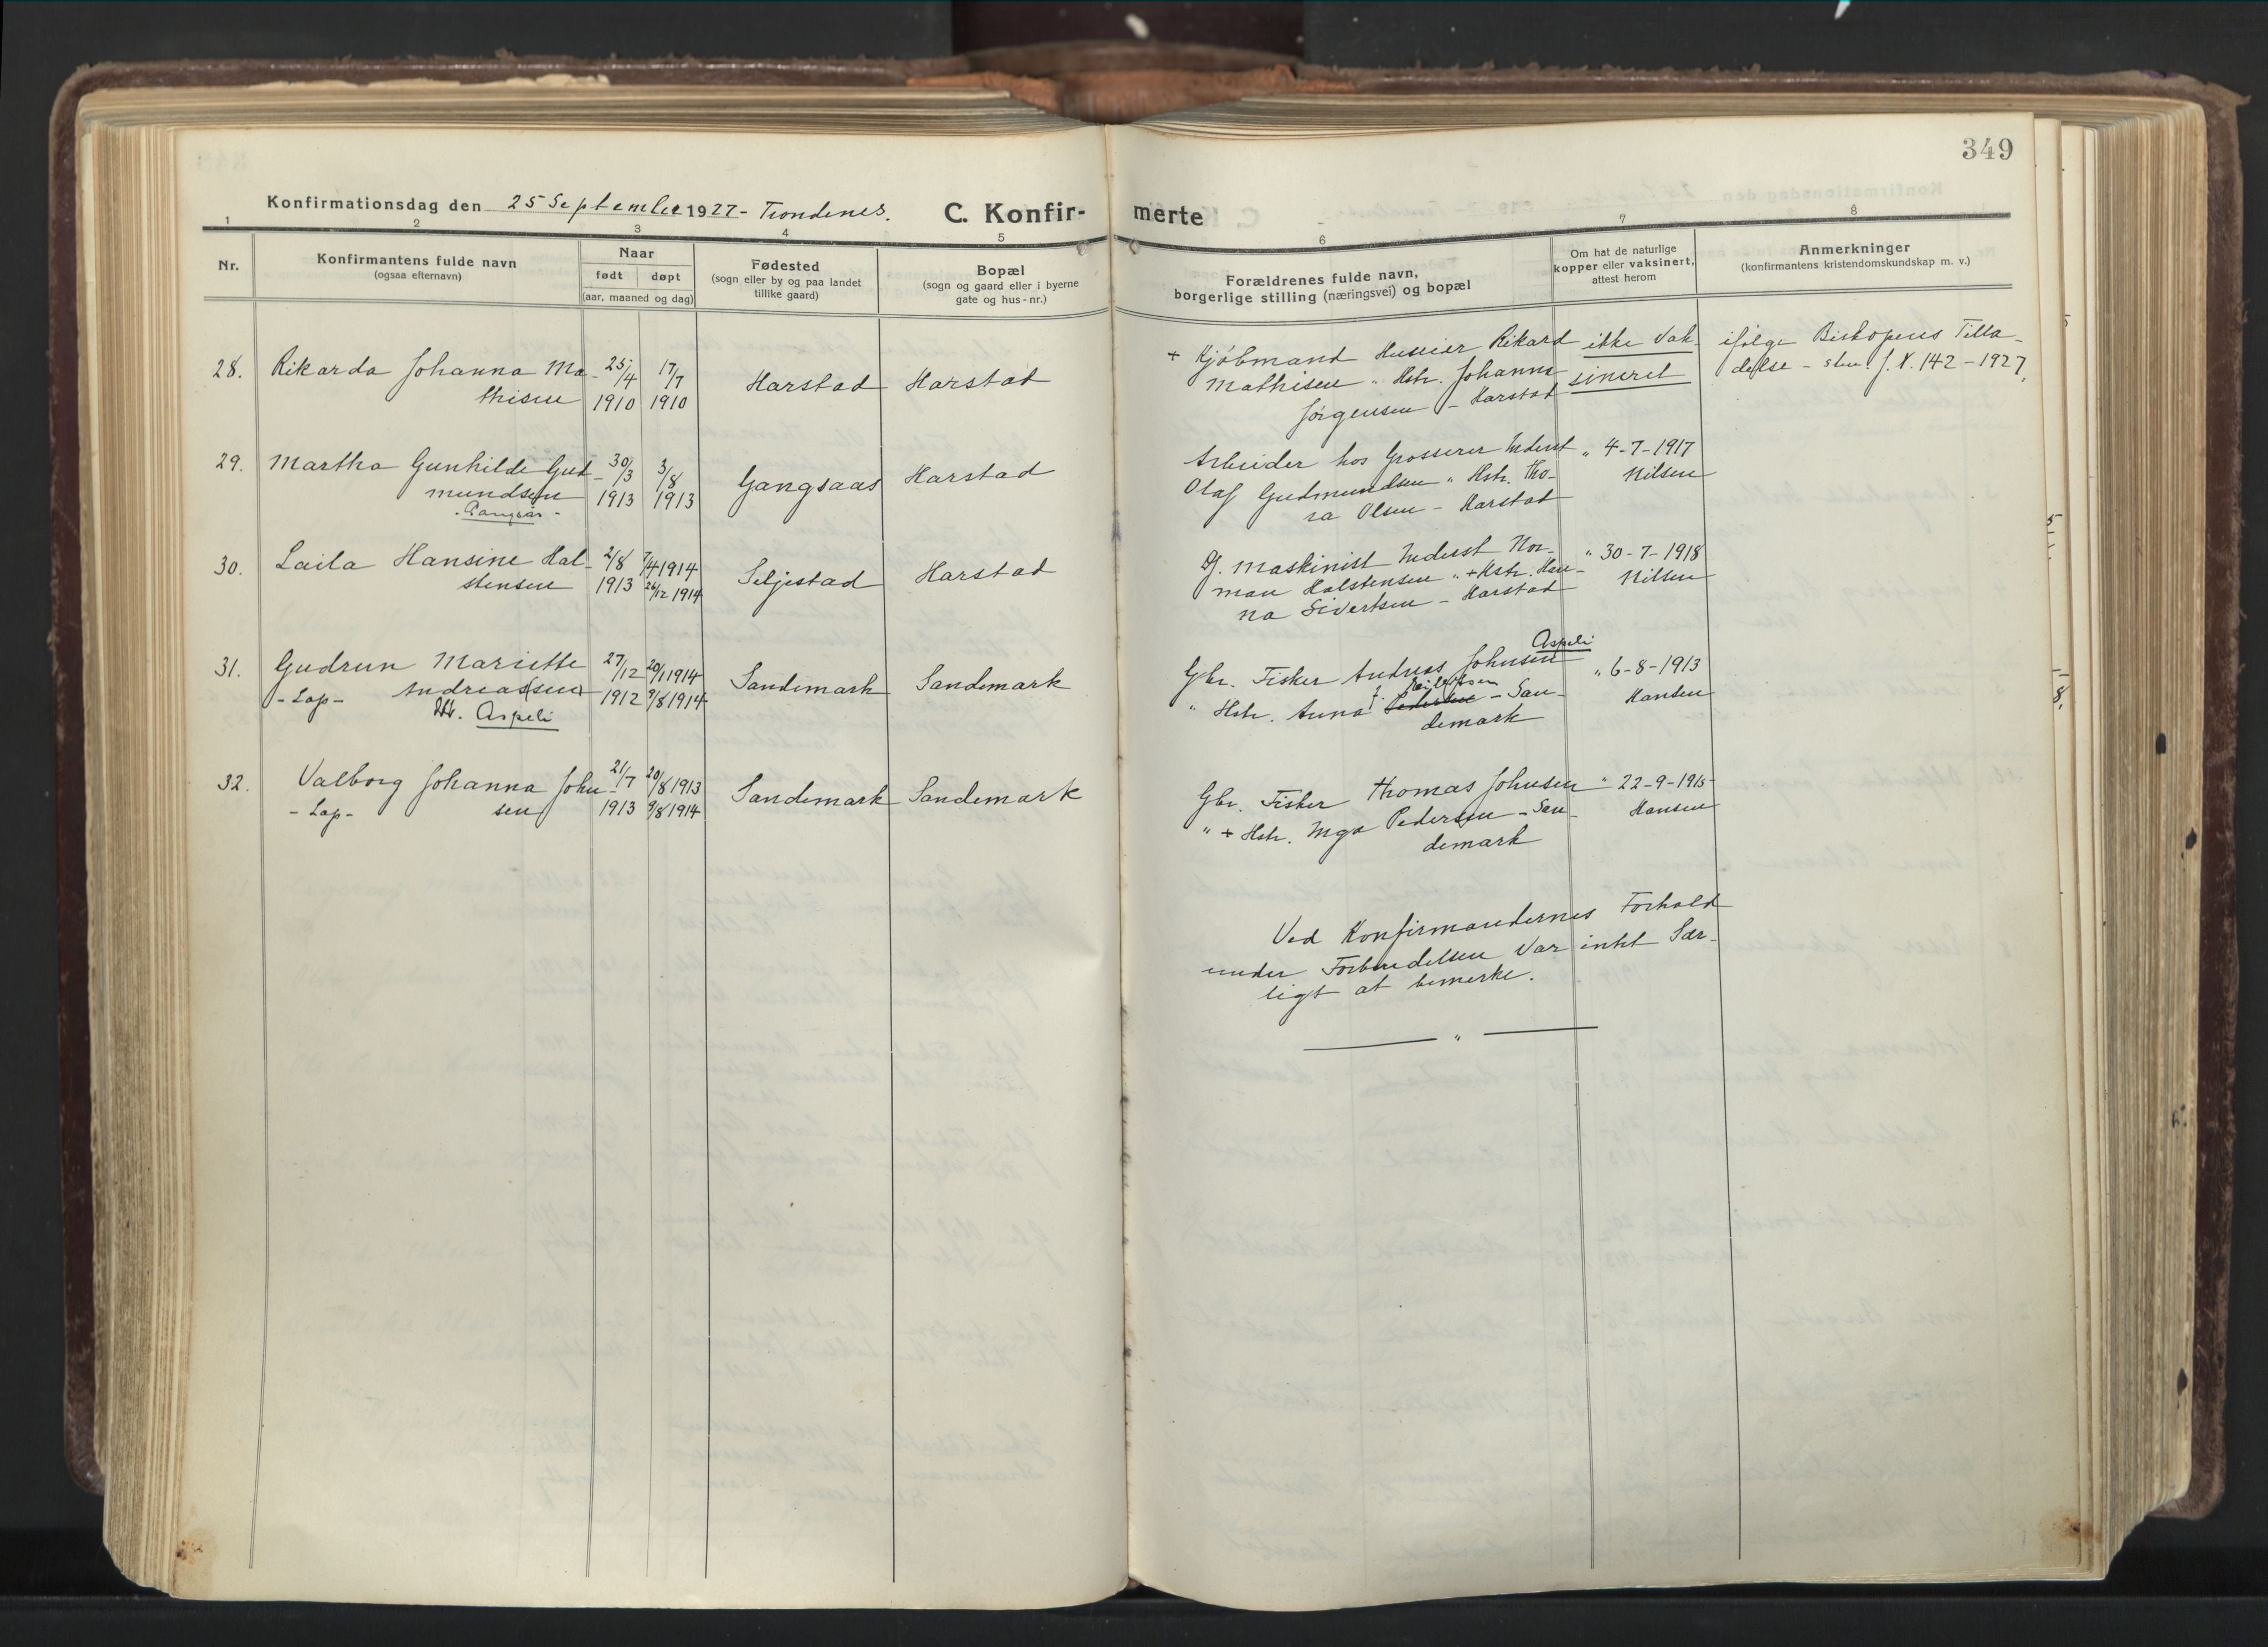 349
Konfirmationsdag den 25 September 1927 - Trondenes.
C. Konfir-
merte
1 2 3 4 5 6 7 8
Nr.
Konfirmantens fulde navn
(ogsaa efternavn)
Naar
født døpt
(aar, maaned og dag)
Fødested
(sogn eller by og paa landet
tillike gaard)
Bopæl
(sogn og gaard eller i byerne
gate og hus-nr.)
Forældrenes fulde navn,
borgerlige stilling (næringsvei) og bopæl
Om hat de naturlige
kopper eller vaksinert,
attest herom
Anmerkninger
(konfirmantens kristendomskundskap m. v.)
28. Rikarda Johanna Ma- 25/4 17/7 Harstad Harstad
thisen 1910 1910
+ Kjøbmand Huseier Rikard ikke vak- ifølge Biskopens Tilla-
Mathisen " Hstr. Johanna sineret delse - J. N. 142 - 1927.
Jørgensen - Harstad
29. Martha Gunhilde Gud- 30/3 3/8 Gangsaas Harstad
mundsen 1913 1913
- Gangsås -
Arbeider hos Grosserer Inderst " 4-7-1917
Olaf Gudmundsen " Hstr. Tho- Nilsen
ra Olsen - Harstad
30. Laila Hansine Hal- 2/8 7/4 1914 Seljestad Harstad
stensen 1913 26/12 1914
G. Maskinist Inderst Nor- " 30-7-1918
man Halstensen " + Hstr. Han- Nilsen
na Sivertsen - Harstad
31. Gudrun Mariette 27/12 20/1 1914 Sandemark Sandemark
- Lap - Andreas(sen) 1912 9/8 1914
Aspeli
Aspeli
Gbr. Fisker Andreas Johnsen " 6-8-1913
" Hstr. Anna Pedersen - San- Hansen
demark
32. Valborg Johanna John- 21/7 20/8 1913 Sandemark Sandemark
- Lap - sen 1913 9/8 1914
Gbr. Fisker Thomas Johnsen " 22-9-1915
" + Hstr. Inga Pedersen - San- Hansen
demark
Ved Konfirmandernes Forhold
under Forberedelsen var intet Sær-
ligt at bemerke.
— " —